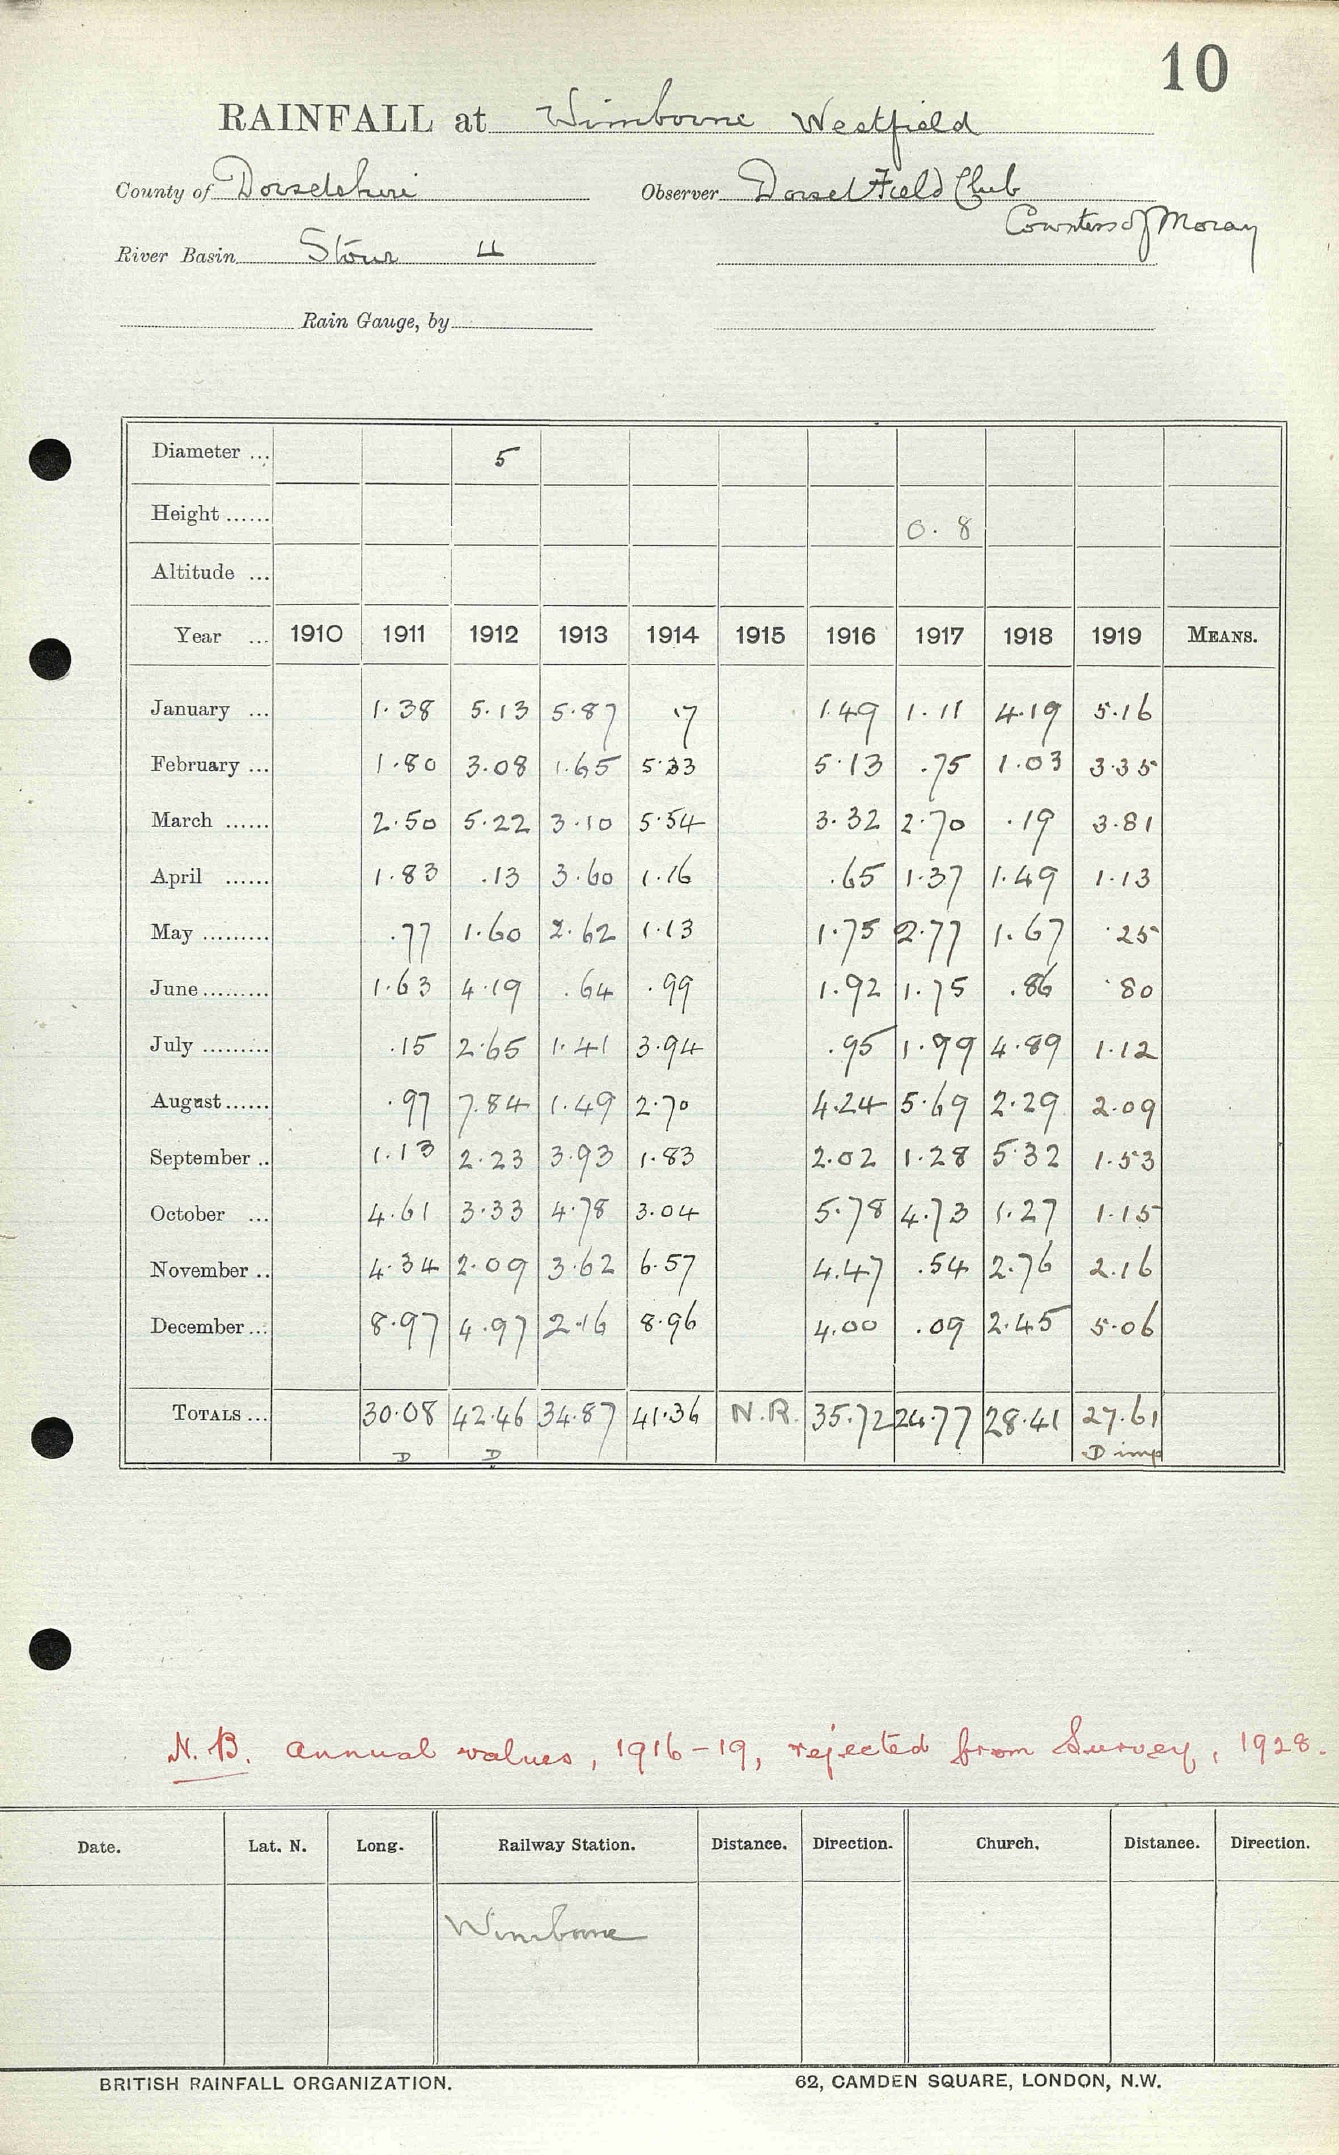 10
RAINFALL at Wimborne Westfield
County of Dorsetshire Observer Dorset Field Club
Countess of Moray
River Basin Stour 4
Rain Gauge, by
Diameter ... 5
Height ...... 0.8
Altitude ...
Year ... 1910 1911 1912 1913 1914 1915 1916 1917 1918 1919 MEANS.
January ... 1.38 5.13 5.87 .7 1.49 1.11 4.19 5.16
February ... 1.80 3.08 1.65 5.33 5.13 .75 1.03 3.35
March ...... 2.50 5.22 3.10 5.54 3.32 2.70 .19 3.81
April ...... 1.83 .13 3.60 1.16 .65 1.37 1.49 1.13
May ......... .77 1.60 2.62 1.13 1.75 2.77 1.67 .25
June ......... 1.63 4.19 .64 .99 1.92 1.75 .86 .80
July ......... .15 2.65 1.41 3.94 .95 1.99 4.89 1.12
August ...... .97 7.84 1.49 2.70 4.24 5.69 2.29 2.09
September .. 1.13 2.23 3.93 1.83 2.02 1.28 5.32 1.53
October ... 4.61 3.33 4.78 3.04 5.78 4.73 1.27 1.15
November .. 4.34 2.09 3.62 6.57 4.47 .54 2.76 2.16
December ... 8.97 4.97 2.16 8.96 4.00 .09 2.45 5.06
TOTALS ... 30.08 42.46 34.87 41.36 N.R. 35.72 24.77 28.41 27.61
D D D imp
N.B. Annual values, 1916-19, rejected from Survey, 1928.
Date. Lat. N. Long. Railway Station. Distance. Direction. Church. Distance. Direction.
Wimborne
BRITISH RAINFALL ORGANIZATION. 62, CAMDEN SQUARE, LONDON, N.W.